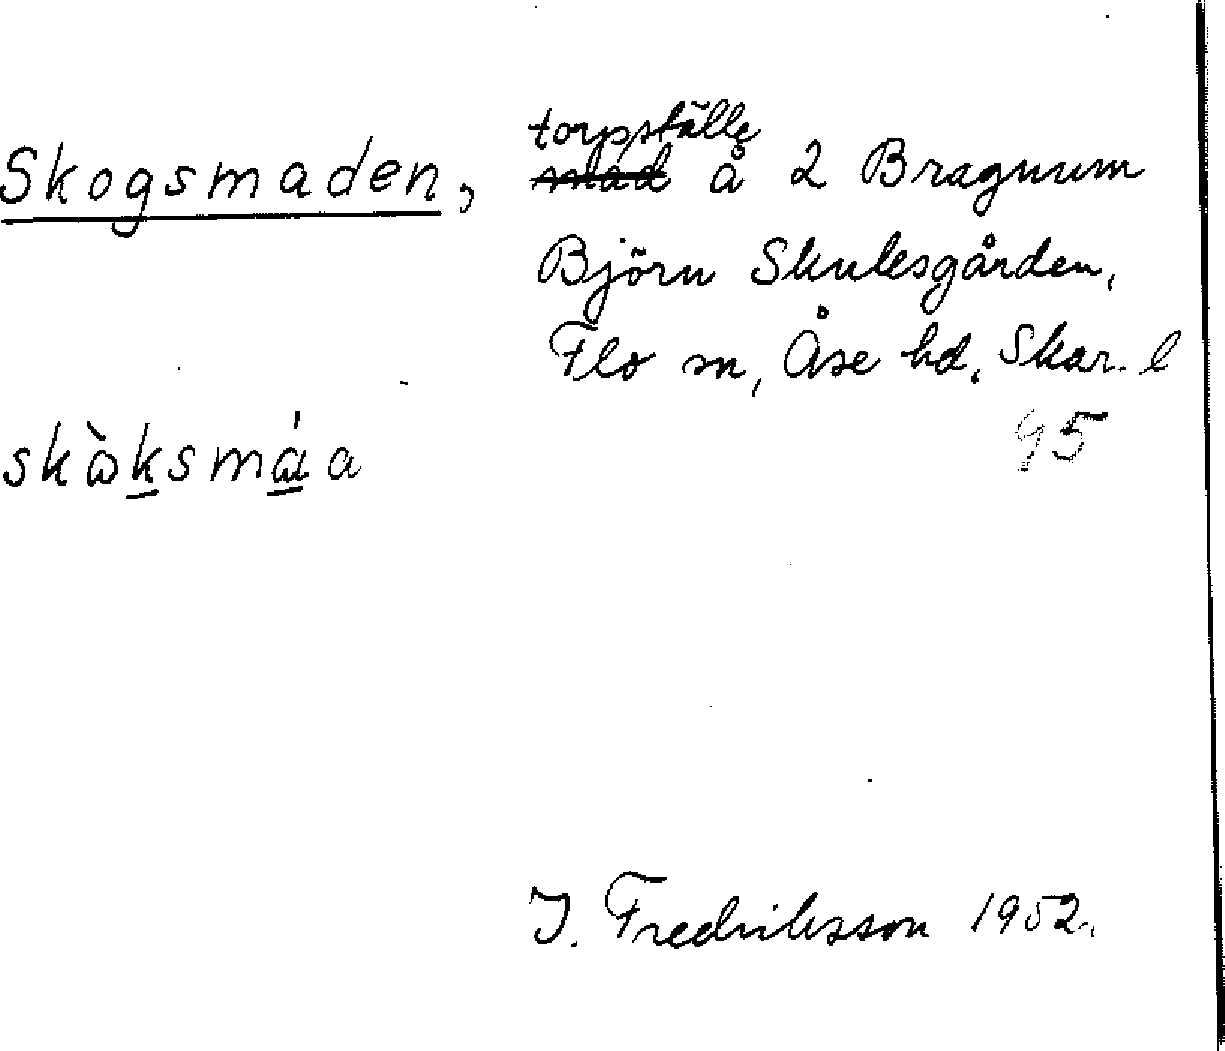 Skogsmaden, torpställe å 2 Bragnum
Björn Skulesgården,
Flo sn, Åse hd, Skar. l
95
skὼksmá̱a
I. Fredriksson 1952.